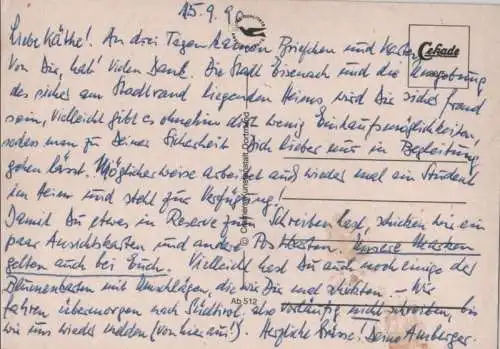 15.9.90
Cekade
Liebe Käthe! An drei Tagen kamen Briefchen und Karten
von Dir, hab' vielen Dank. Die Stadt Eisenach und die Umgebung
des sicher am Stadtrand liegenden Heims wird Dir sicher fremd
sein, vielleicht gibt es ohnehin dort wenig Einkaufsmöglichkeiten,
sodass man zu Deiner Sicherheit Dich lieber nur in Begleitung
gehen lässt. Möglicherweise arbeitet auch wieder mal ein Student
im Heim und steht zur Verfügung!
Damit Du etwas in Reserve zum Schreiben hast, schicken wir ein
paar Ansichtskarten und andere Postkarten. Unsere Marken
gelten auch bei Euch. Vielleicht hast Du auch noch einige der
Blumenkarten mit Umschlägen, die wir Dir mal schickten. - Wir
fahren übermorgen nach Südtirol, also vorläufig nicht schreiben, bis
wir uns wieder melden (von hier aus!). Herzliche Grüsse! Deine Amberger.
© Cekade Kunstanstalt, Dortmund
Ab 512